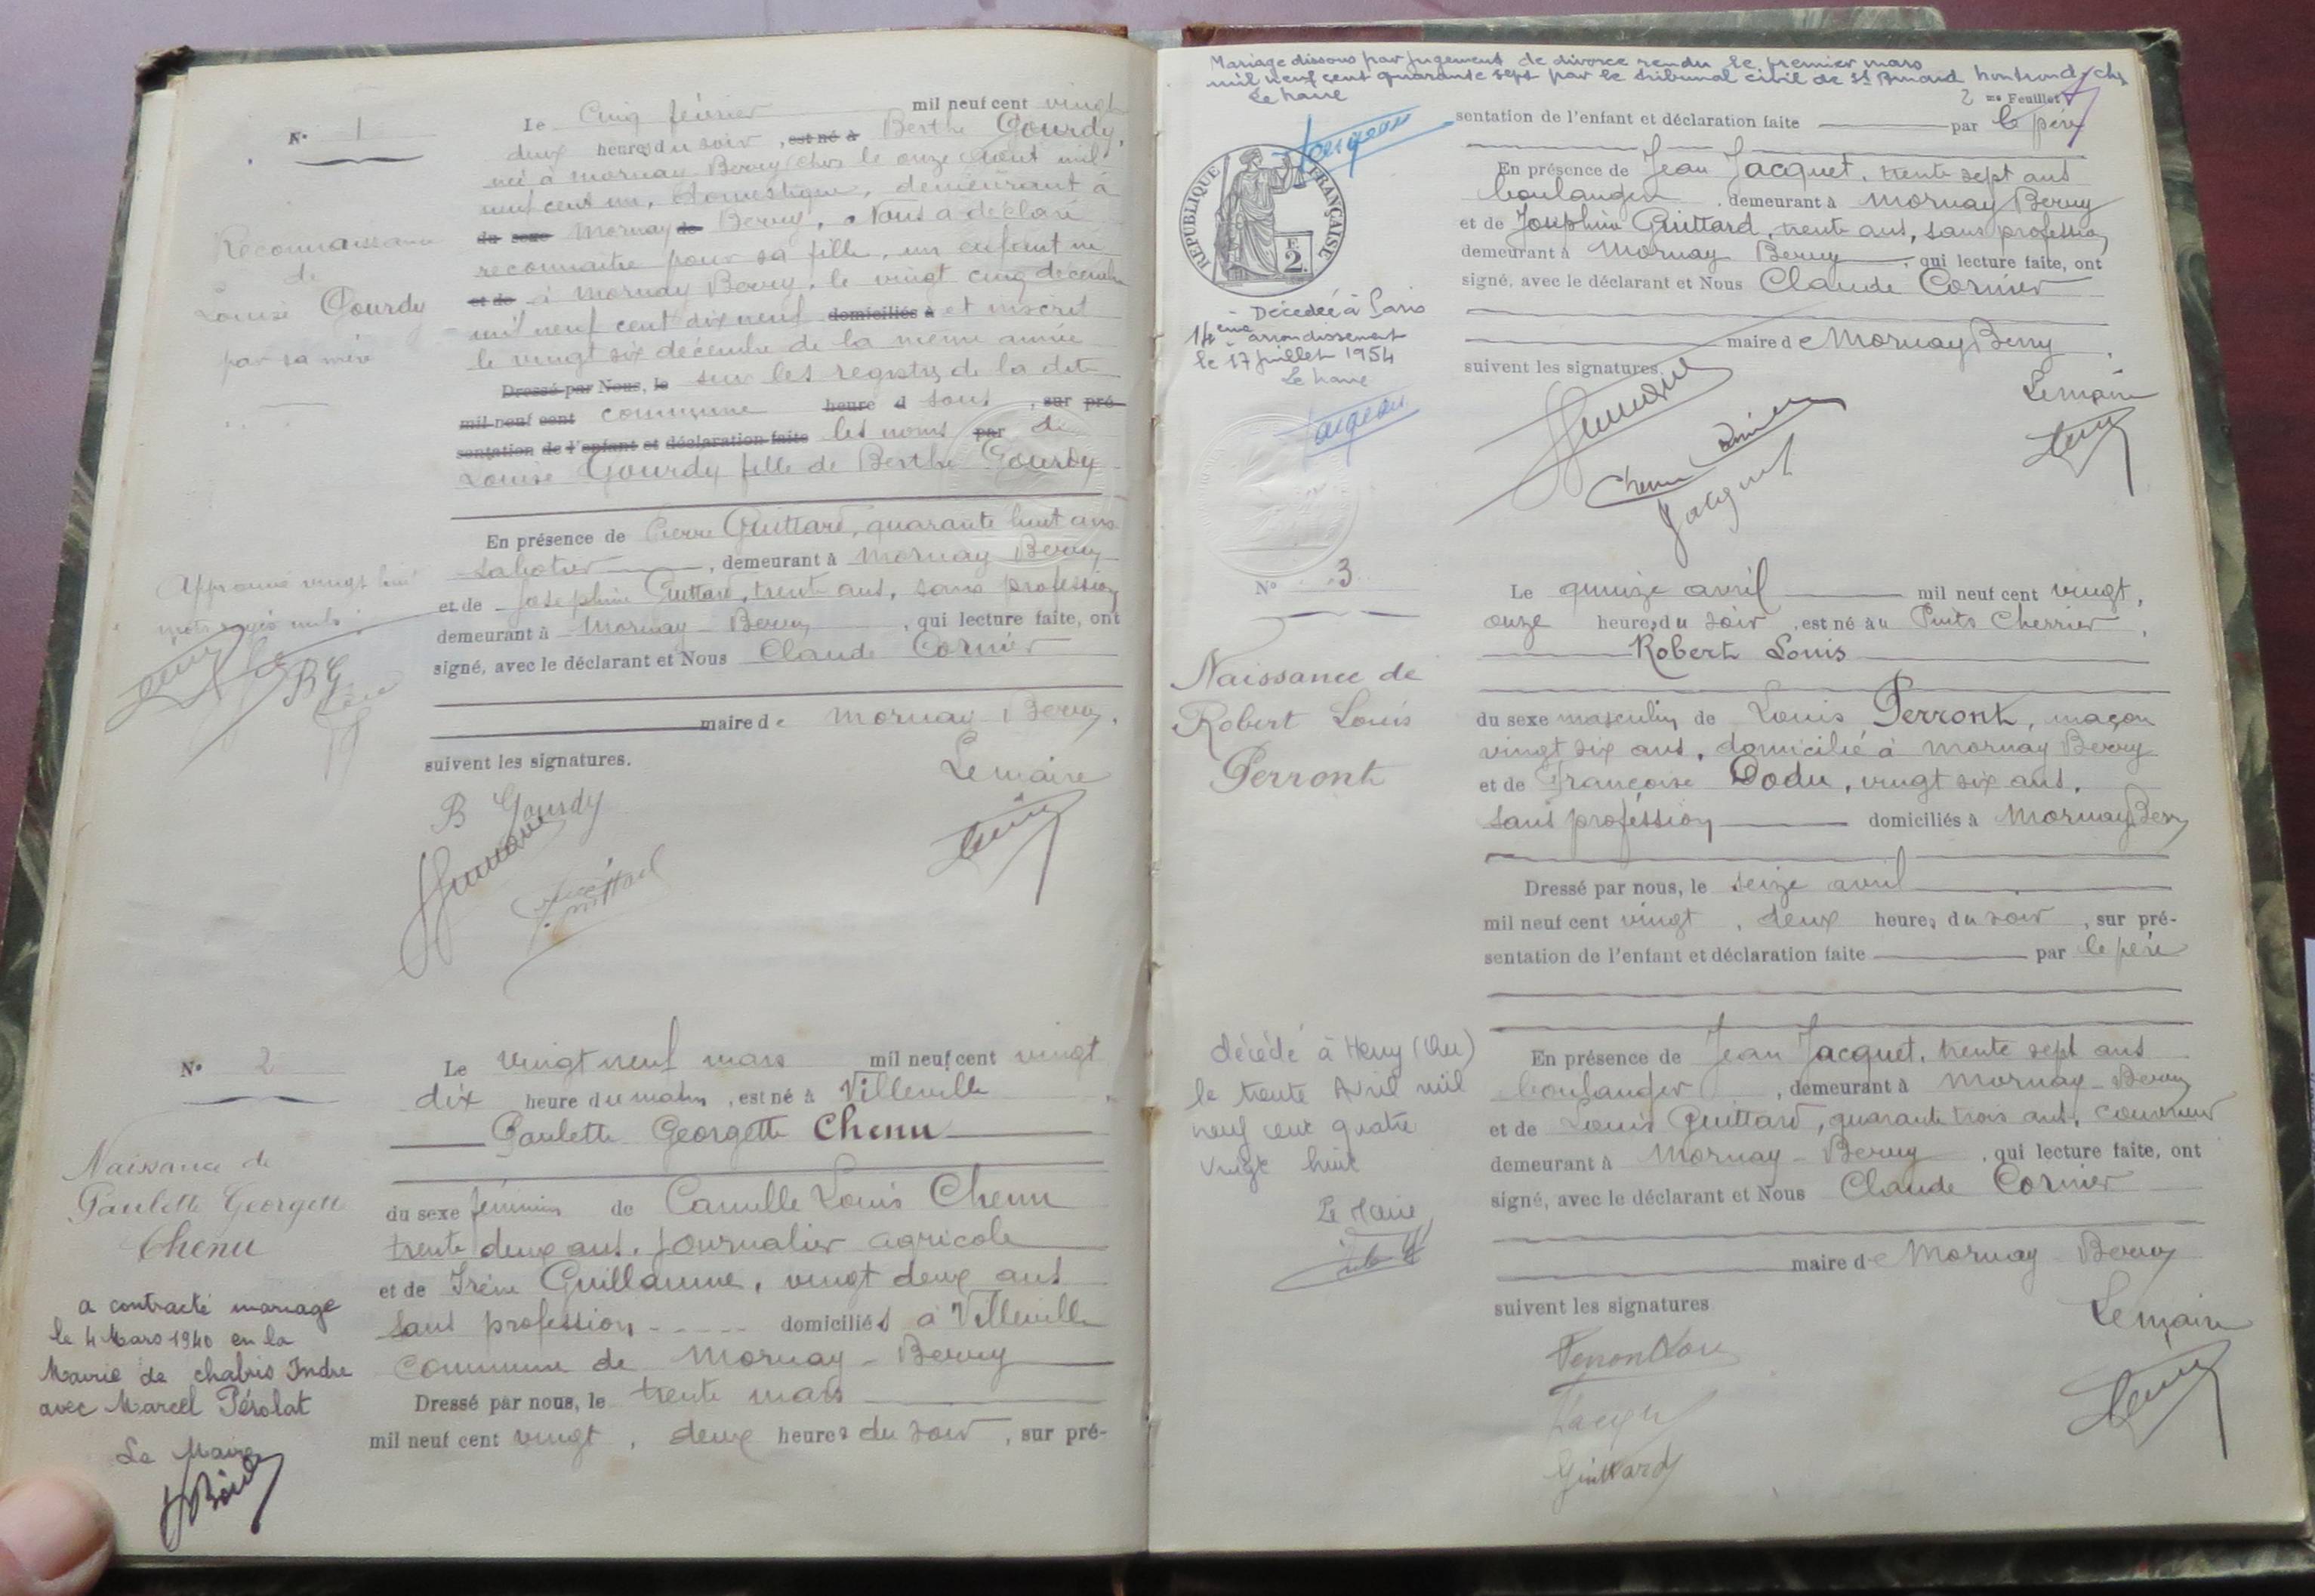 N° 1
Reconnaissance
de
Louise Gourdy
par sa mère
Le Cinq février mil neuf cent vingt
deux heures du soir, est né à Berthe Gourdy,
née à Mornay-Berry (Cher) le onze août mil
neuf cent un, domestique, demeurant à
du sexe Mornay de Berry, Nous a déclaré
reconnaitre pour sa fille, un enfant né
et de à Mornay Berry, le vingt cinq décembre
mil neuf cent dix neuf domiciliés à et inscrit
le vingt six décembre de la même année
Dressé par Nous, le sur les registres de la dite
mil neuf cent commune heure d sous, sur pré-
sentation de l'enfant et déclaration faite les noms par de
Louise Gourdy fille de Berthe Gourdy
En présence de Pierre Guittard, quarante huit ans
sabotier, demeurant à Mornay Berry
et de Joséphine Guittard, trente ans, sans profession
demeurant à Mornay-Berry, qui lecture faite, ont
signé, avec le déclarant et Nous Claude Cornier
maire de Mornay-Berry.
suivent les signatures.
Le maire
B Gourdy
Approuvé vingt huit
mots rayés nuls
BG
N° 2
Naissance de
Paulette Georgette
Chenu
a contracté mariage
le 4 Mars 1940 en la
Mairie de Chabris Indre
avec Marcel Pérolat
Le Maire
Le vingt neuf mars mil neuf cent vingt
dix heure du matin, est né à Villeville
Paulette Georgette Chenu
du sexe féminin de Camille Louis Chenu
trente deux ans, journalier agricole
et de Irène Guillaume, vingt deux ans
sans profession domiciliés à Villeville
Commune de Mornay-Berry
Dressé par nous, le trente mars
mil neuf cent vingt, deux heures du soir, sur pré-
Mariage dissous par jugement de divorce rendu le premier mars
mil neuf cent quarante sept par le tribunal civil de St Amand Montrond, Cher
Le maire
2 me Feuillet
sentation de l'enfant et déclaration faite par le père
RÉPUBLIQUE FRANÇAISE
F. 2.
Décédée à Paris
14ème arrondissement
le 17 juillet 1954
Le maire
En présence de Jean Jacquet, trente sept ans
boulanger, demeurant à Mornay Berry
et de Joséphine Guittard, trente ans, sans profession
demeurant à Mornay Berry, qui lecture faite, ont
signé, avec le déclarant et Nous Claude Cornier
maire de Mornay Berry
suivent les signatures.
Le maire
Chenu Camille
Jacquet
N° 3
Naissance de
Robert Louis
Perront
Le quinze avril mil neuf cent vingt,
onze heures du soir, est né au Puits Cherrier,
Robert Louis
du sexe masculin de Louis Perront, maçon
vingt six ans, domicilié à Mornay Berry
et de Françoise Dodu, vingt six ans,
sans profession domiciliés à Mornay Berry
Dressé par nous, le seize avril
mil neuf cent vingt, deux heures du soir, sur pré-
sentation de l'enfant et déclaration faite par le père
décédé à Héry
le trente Avril mil
neuf cent quatre
vingt huit
Le Maire
En présence de Jean Jacquet, trente sept ans
boulanger, demeurant à Mornay-Berry
et de Louis Guittard, quarante trois ans, couvreur
demeurant à Mornay-Berry, qui lecture faite, ont
signé, avec le déclarant et Nous Claude Cornier
maire de Mornay-Berry
suivent les signatures
Le maire
Jacquet
Guittard